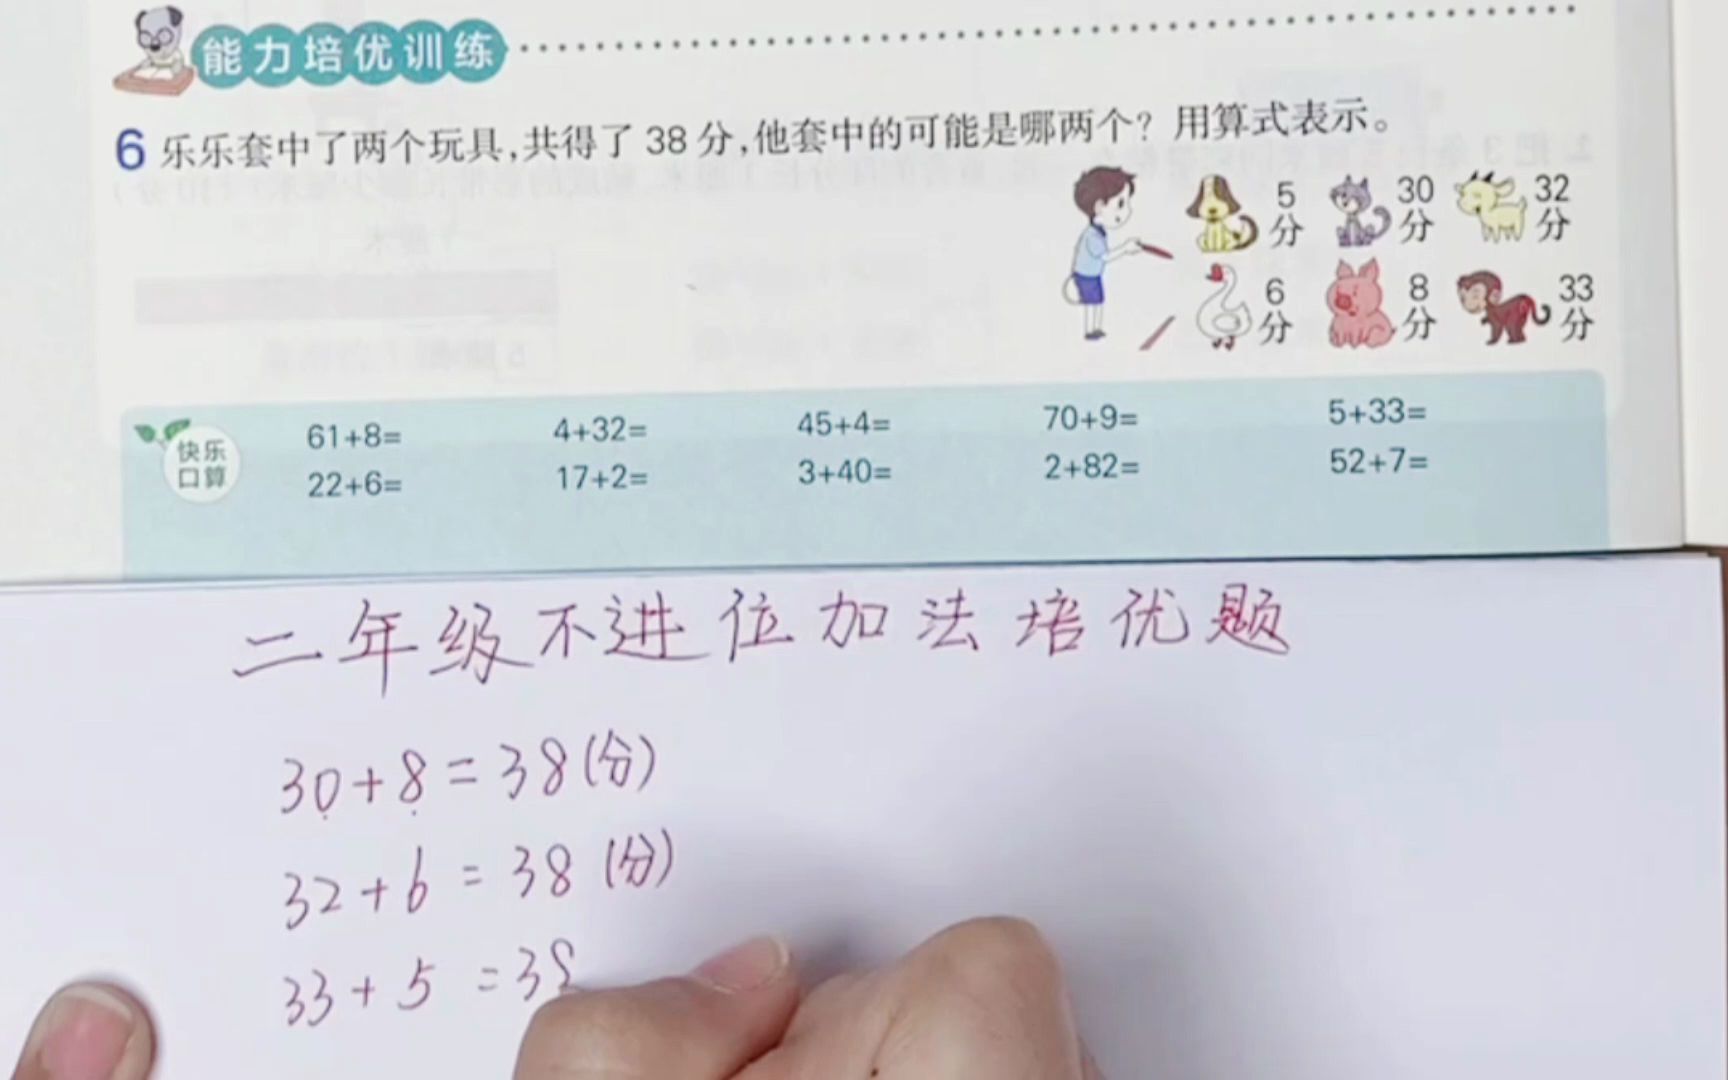 能力培优训练
6 乐乐套中了两个玩具,共得了38分,他套中的可能是哪两个？用算式表示。
5分 30分 32分
6分 8分 33分
快乐口算
61+8= 4+32= 45+4= 70+9= 5+33=
22+6= 17+2= 3+40= 2+82= 52+7=
二年级不进位加法培优题
30+8=38(分)
32+6=38(分)
33+5=38